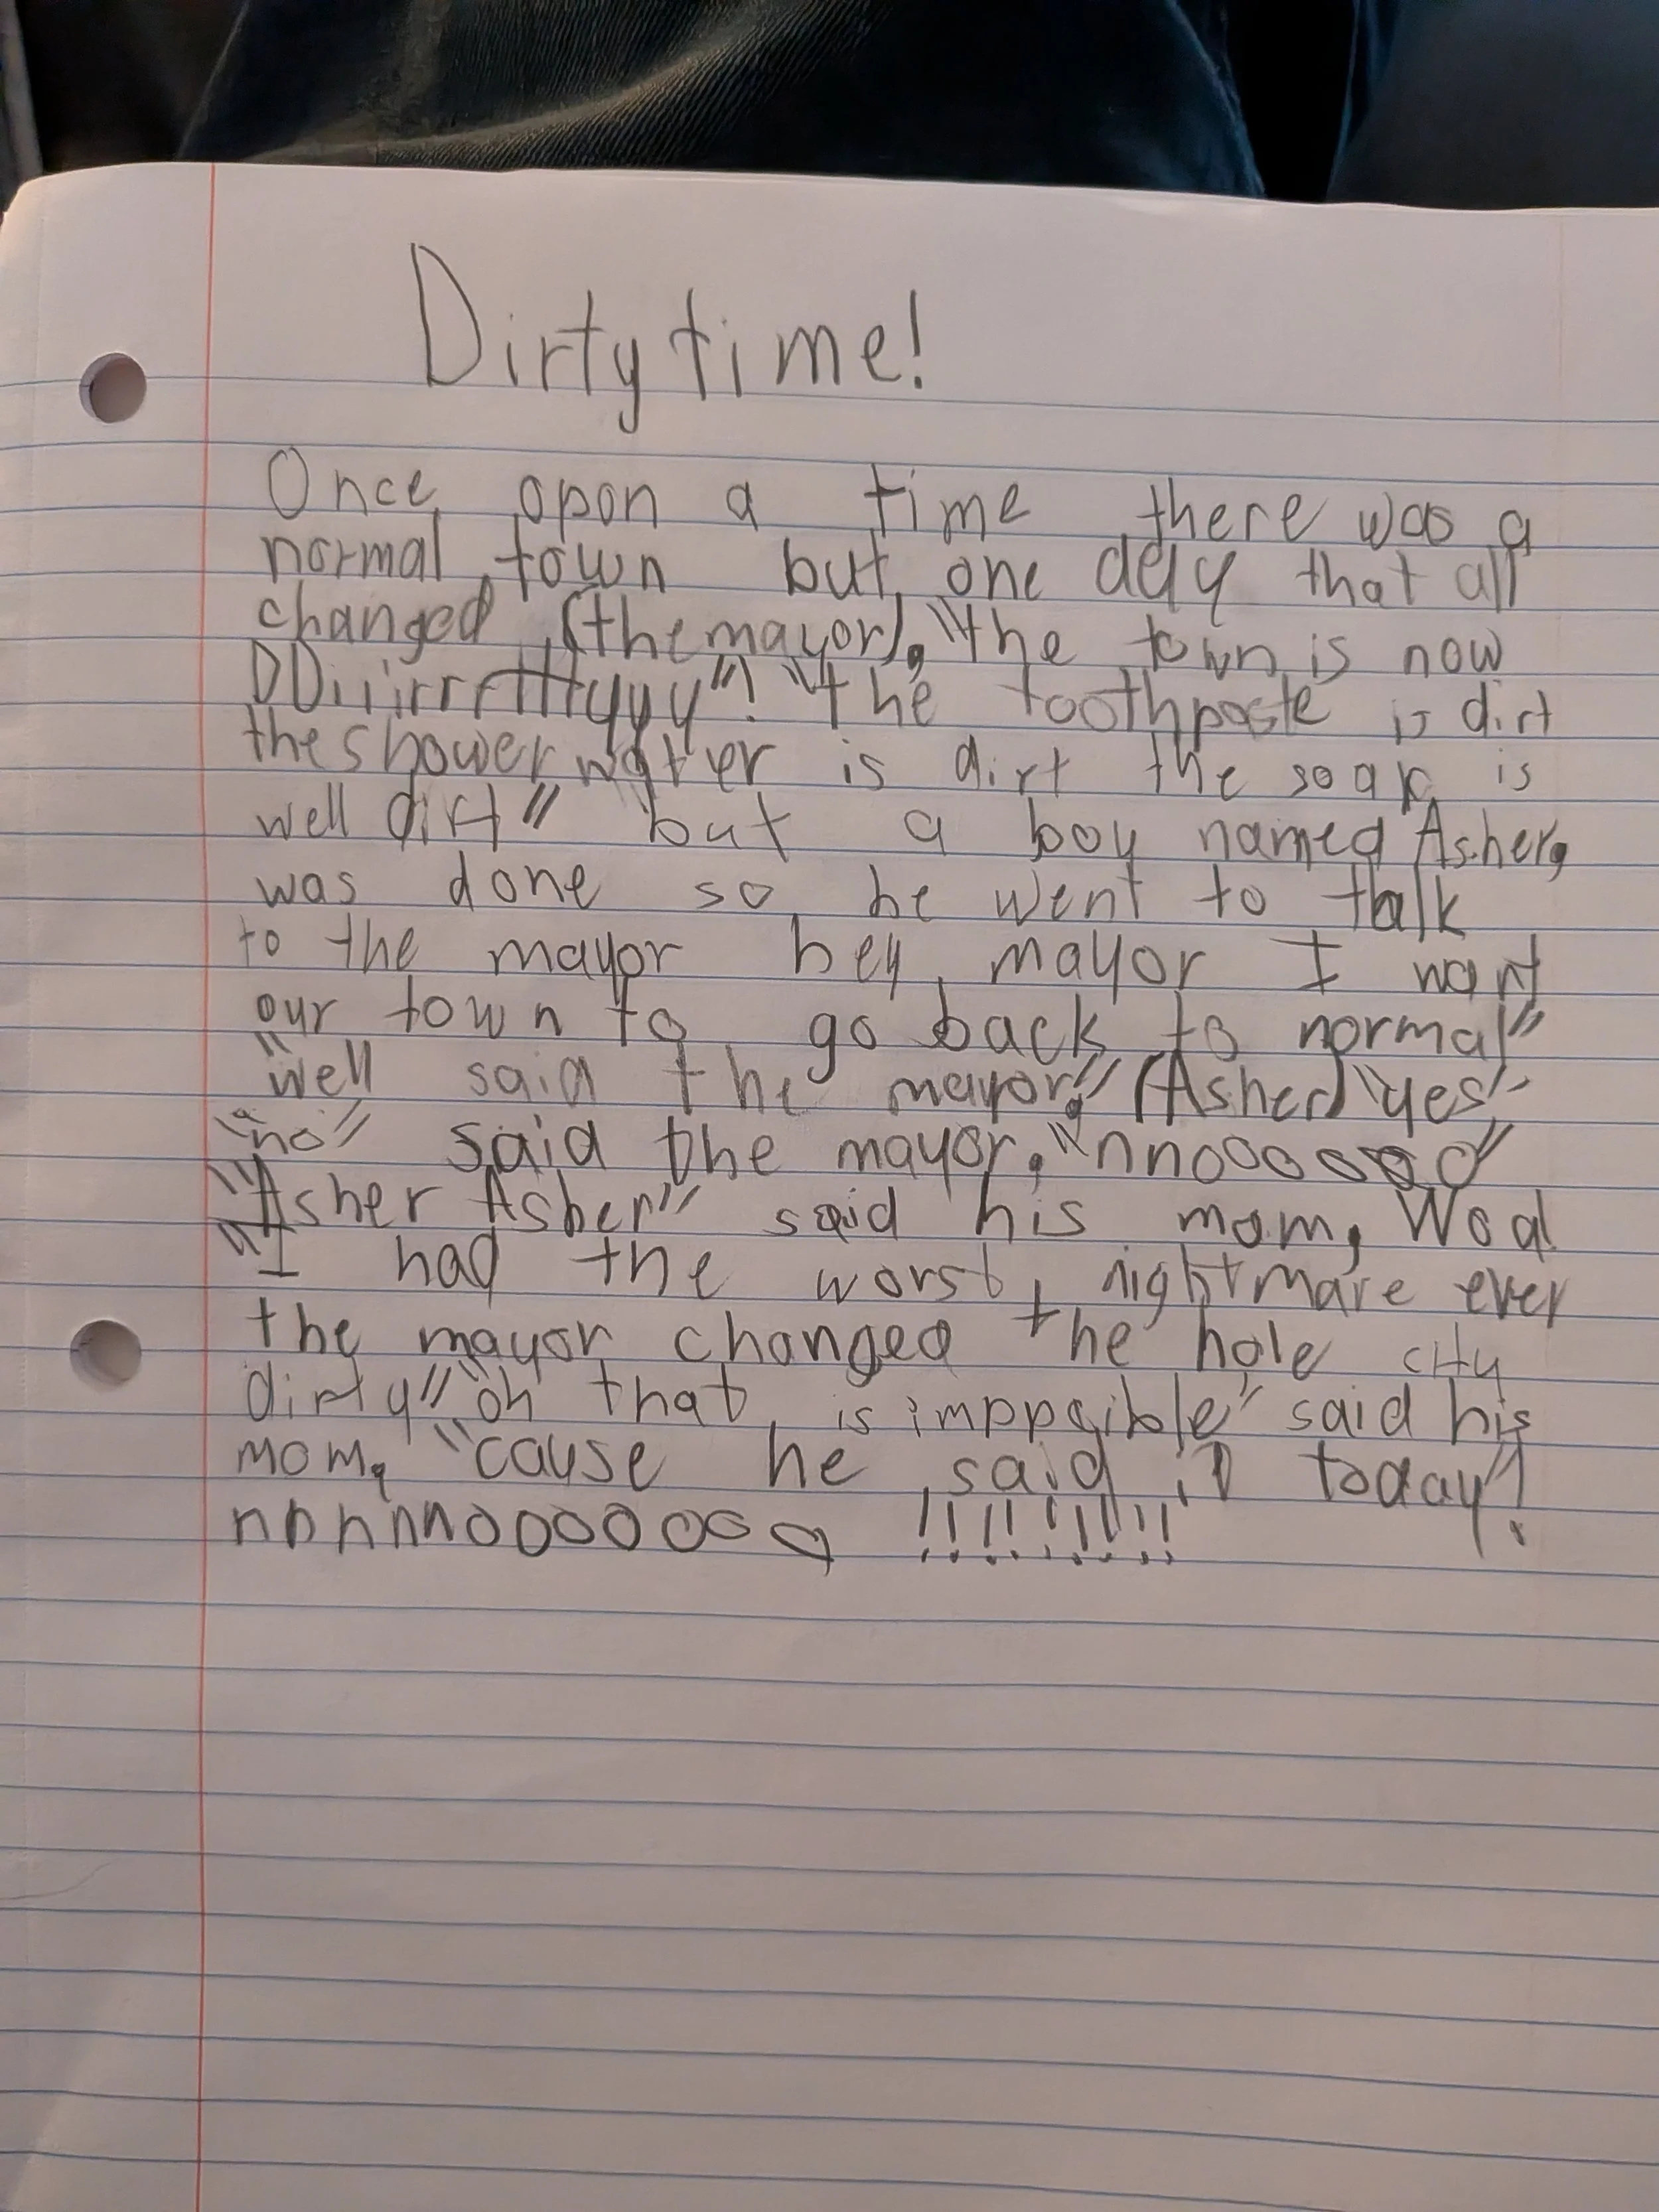 Dirty time!
Once opon a time there was a
normal town but one day that all
changed (the mayor), "the town is now
DDiiiirrrttttyyyy"! "the toothpaste is dirt
the shower water is dirt the soap is
well dirt" but a boy named Asher,
was done so he went to talk
to the mayor hey mayor I want
our town to go back to normal"
"well said the mayor," (Asher) "yes"
"no" said the mayor, "nnooooooo"
"Asher Asher" said his mom, Woa!
"I had the worst nightmare ever
the mayor changed the hole city
dirty" "oh that is imppaible" said his
mom, "cause he said it today"!
nnnnnnoooooooo !!!!!!!!!!